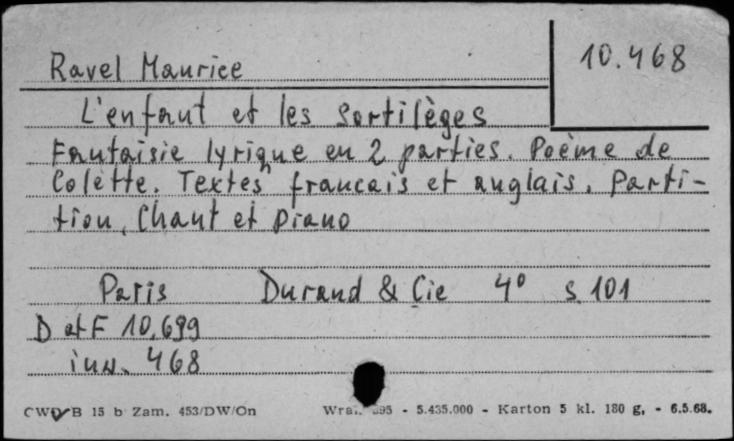 Ravel Maurice
10.468
L'enfant et les sortilèges
Fantaisie lyrique en 2 parties. Poème de
Colette. Textes francais et anglais. Parti-
tion, Chant et piano
Paris Durand & Cie 4° S. 101
D et F 10.699
inv. 468
CWD B 15 b Zam. 453/DW/On
395 - 5.435.000 - Karton 5 kl. 180 g. - 6.5.68.